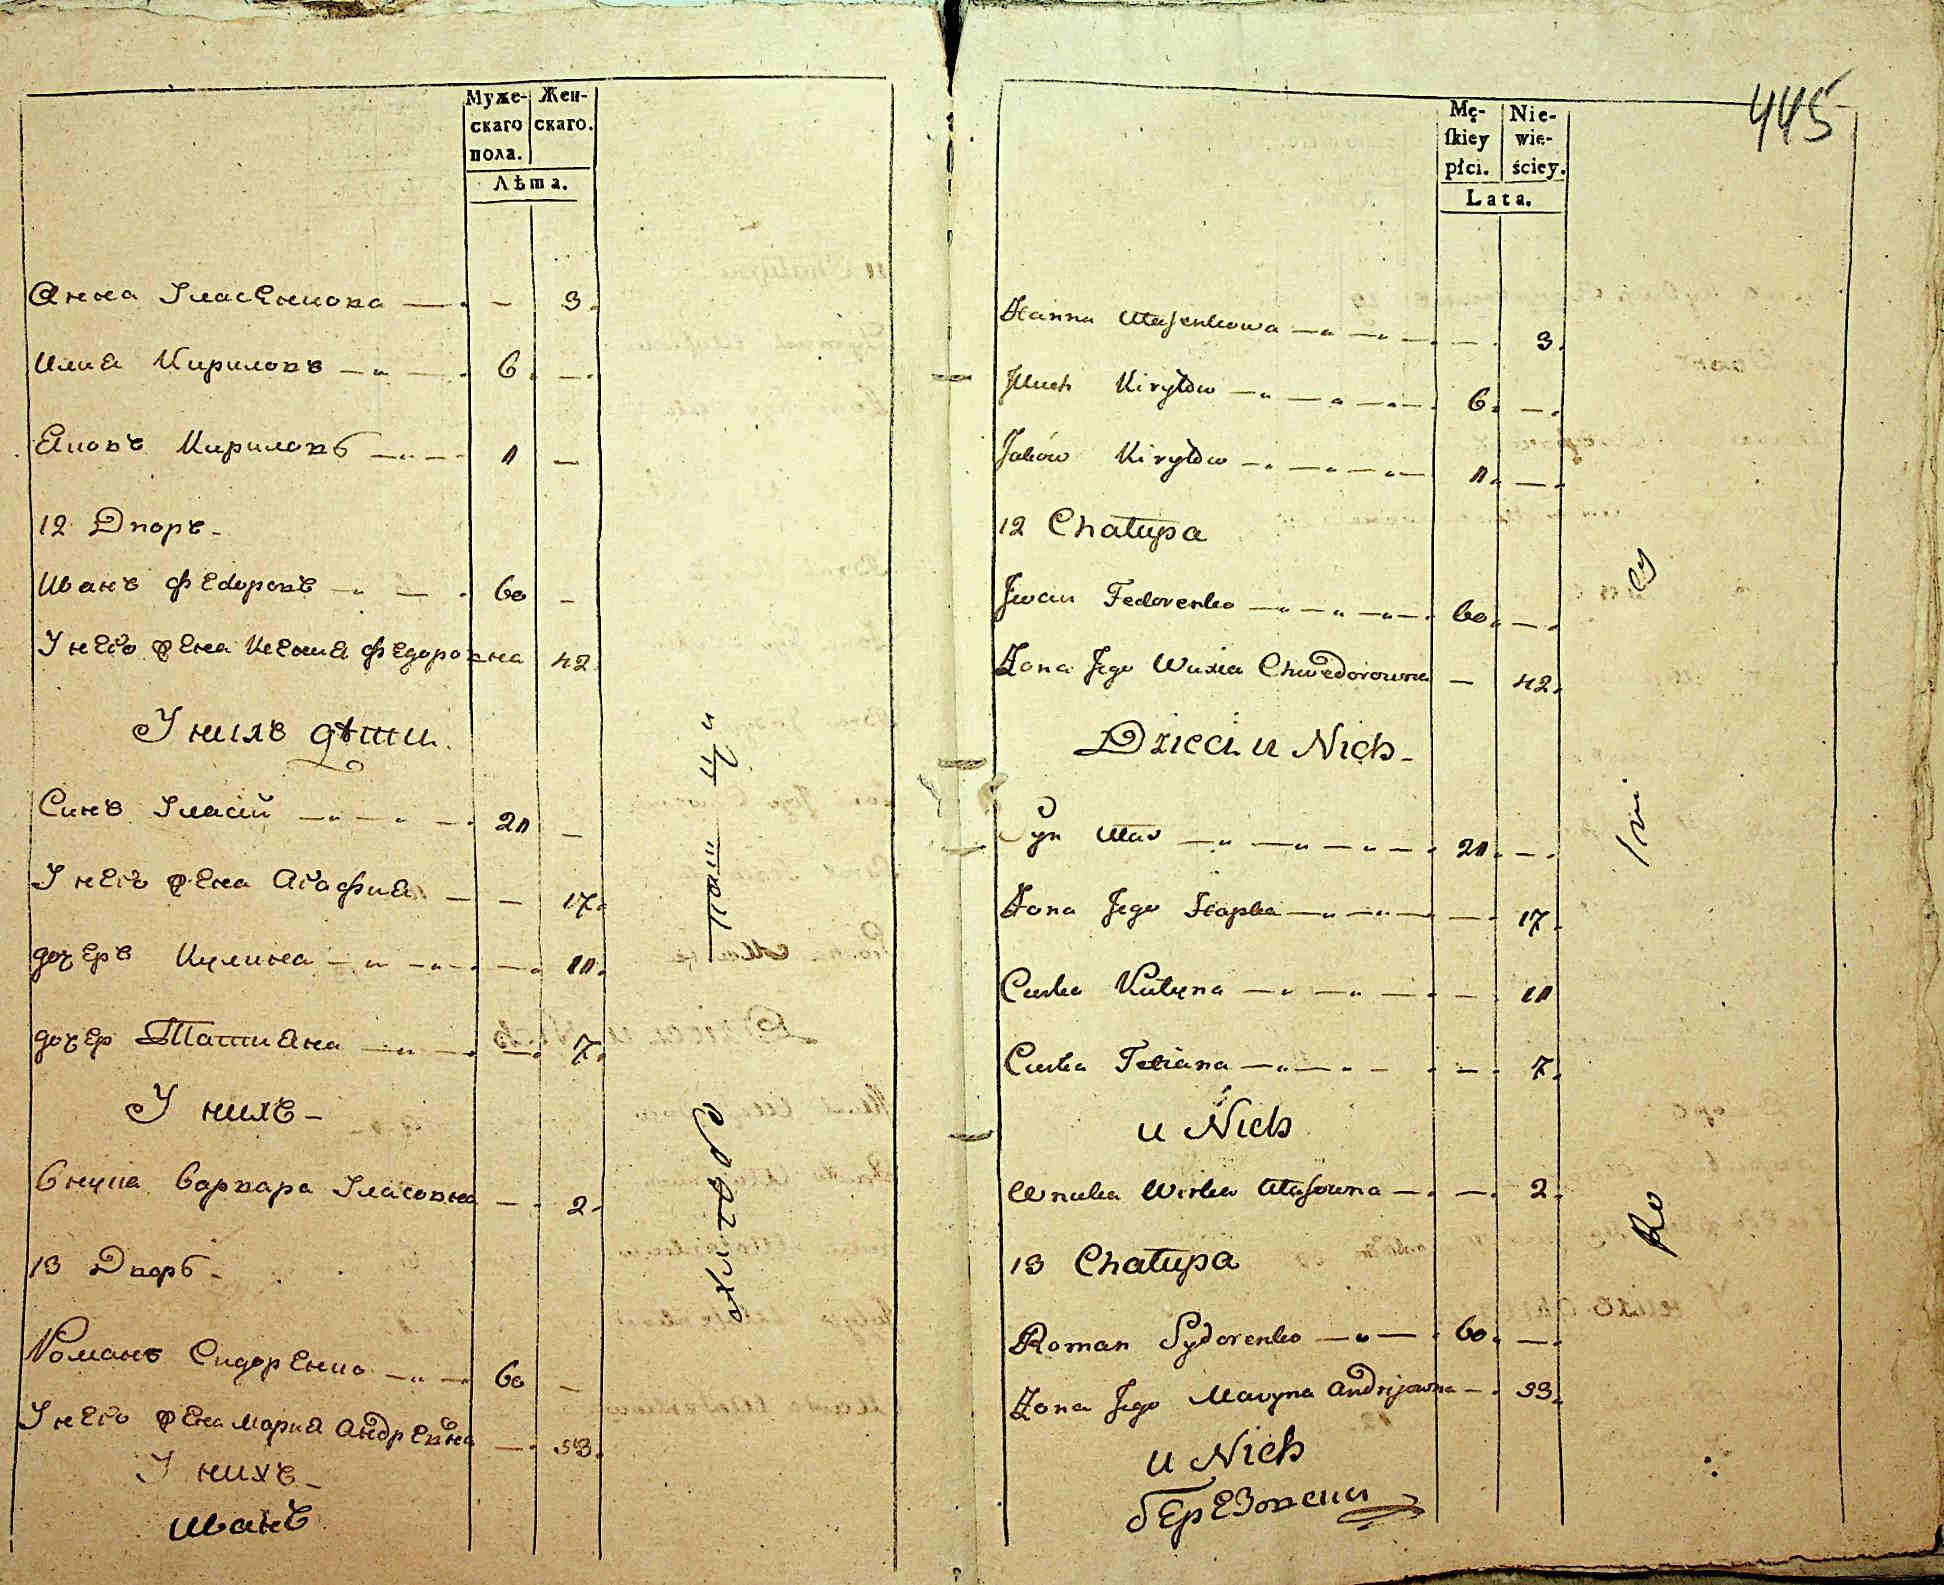 Муже-
скаго
пола.
Жен-
скаго.
Лѣта.
Анна Уласенкова — 3.
Илия Кириловъ 6. —
Яковъ Кириловъ 11 —
12 Дворъ
Иванъ Федоровъ 60 —
У него жена Ксения Федоровна 42
У нихъ дѣти.
Синъ Уласій 20 —
У него жена Агафия — 17.
дочеръ Кулина — 10.
дочер Татияна — 7.
У нихъ
внука Варвара Уласовна — 2
13 Дворъ
Романъ Сидоренко 60 —
У него жена Мария Андреевна — 53.
У нихъ
Иванъ
445
Mę-
skiey
płci.
Nie-
wie-
ściey.
Lata.
Hanna Ułasenkowa — 3.
Jluch Kiryłow 6. —
Jakow Kiryłow 11. —
12 Chałupa
Jwan Fedorenko 60. —
Żona Jego Chwedorowna — 42.
Dzieci u Nich
Syn Ułas 20. —
Żona Jego Hapka — 17.
Curka Kulyna — 10
Curka Tetiana — 7.
u Nich
Wnuka Wirka Ułasowna — 2.
13 Chałupa
Roman Sydorenko 60. —
Żona Jego Maryna Andrijowna — 53.
u Nich
Березовски